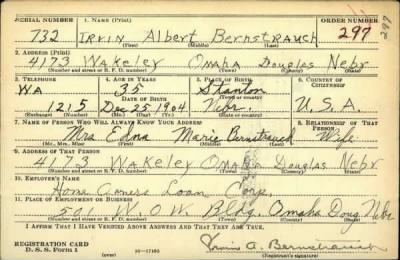 SERIAL NUMBER 1. NAME (Print) ORDER NUMBER
732 Irvin Albert Bernstrauch 297
(First) (Middle) (Last)
2. ADDRESS (Print)
4173 Wakeley Omaha Douglas Nebr
(Number and street or R. F. D. number) (Town) (County) (State)
3. TELEPHONE 4. AGE IN YEARS 5. PLACE OF BIRTH 6. COUNTRY OF CITIZENSHIP
WA 35 Stanton
DATE OF BIRTH (Town or county)
1215 Dec 25 1904 Nebr. U.S.A.
(Exchange) (Number) (Mo.) (Day) (Yr.) (State or country)
7. NAME OF PERSON WHO WILL ALWAYS KNOW YOUR ADDRESS 8. RELATIONSHIP OF THAT PERSON
Mrs Edna Marie Bernstrauch Wife
(Mr., Mrs., Miss) (First) (Middle) (Last)
9. ADDRESS OF THAT PERSON
4173 Wakeley Omaha Douglas Nebr
(Number and street or R. F. D. number) (Town) (County) (State)
10. EMPLOYER'S NAME
Home Owners Loan Corp.
11. PLACE OF EMPLOYMENT OR BUSINESS
501 W.O.W. Bldg. Omaha Doug. Nebr
(Number and street or R. F. D. number) (Town) (County) (State)
I AFFIRM THAT I HAVE VERIFIED ABOVE ANSWERS AND THAT THEY ARE TRUE.
REGISTRATION CARD
D. S. S. Form 1 16—17105 Irvin A. Bernstrauch
(Registrant's signature)
297